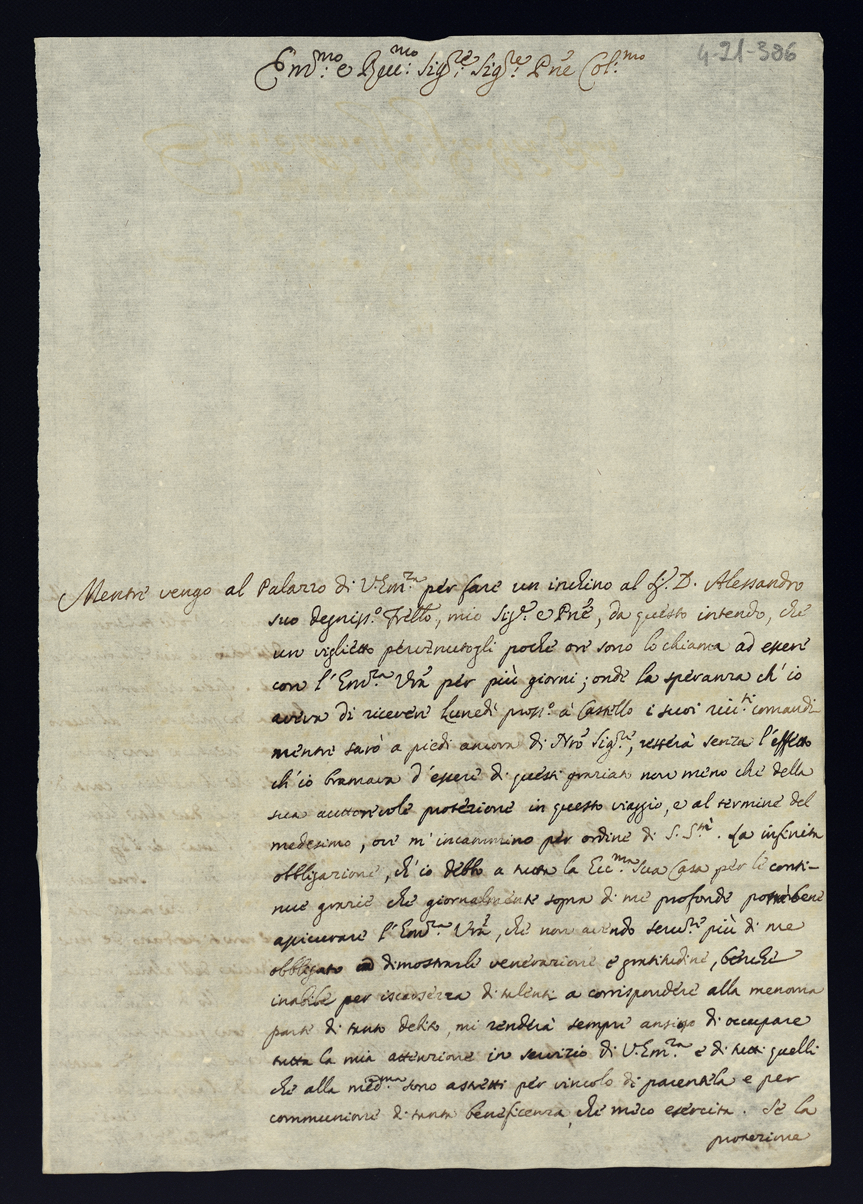 4-21-386
Em.mo e Rev.mo Sig.re Sig.re Pne Col.mo
Mentre vengo al Palazzo di V.Em.za per fare un inchino al Sig.r D. Alessandro
suo degniss.o Frello, mio Sig.r e Pne, da questo intendo, che
un viglietto pervenutogli poche ore sono lo chiama ad essere
con l'Em.za Vra per più giorni; onde la speranza ch'io
aveva di ricevere Lunedì pross.o à Castello i suoi riv.ti comandi
mentre sarò a piedi ancora di Nro Sig.re, resterà senza l'effetto
ch'io bramava d'essere di questi graziato non meno che della
sua auttorevole protezione in questo viaggio, e al termine del
medesimo, ove m'incammino per ordine di S. S.tà. La infinita
obbligazione, ch'io debbo a tutta la Ecc.ma sua Casa per le conti-
nue grazie che giornalmente sopra di me profonde potrà bene
assicurare l'Em.za Vra, che non avendo serv.re più di me
obbligato ad dimostrarle venerazione e gratitudine, benche
inabile per iscarsezza di talenti a corrispondere alla menoma
parte di tanto debito, mi renderà sempre ansioso di occupare
tutta la mia attenzione in servizio di V.Em.za e di tutti quelli
che alla med.ma sono astretti per vincolo di parentela e per
communione di tanta beneficenza, che meco esercita. Se la
protezione